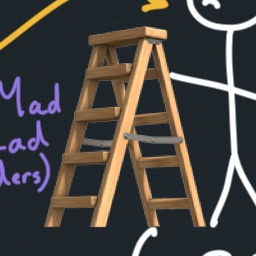 Mad
Lad
ders)